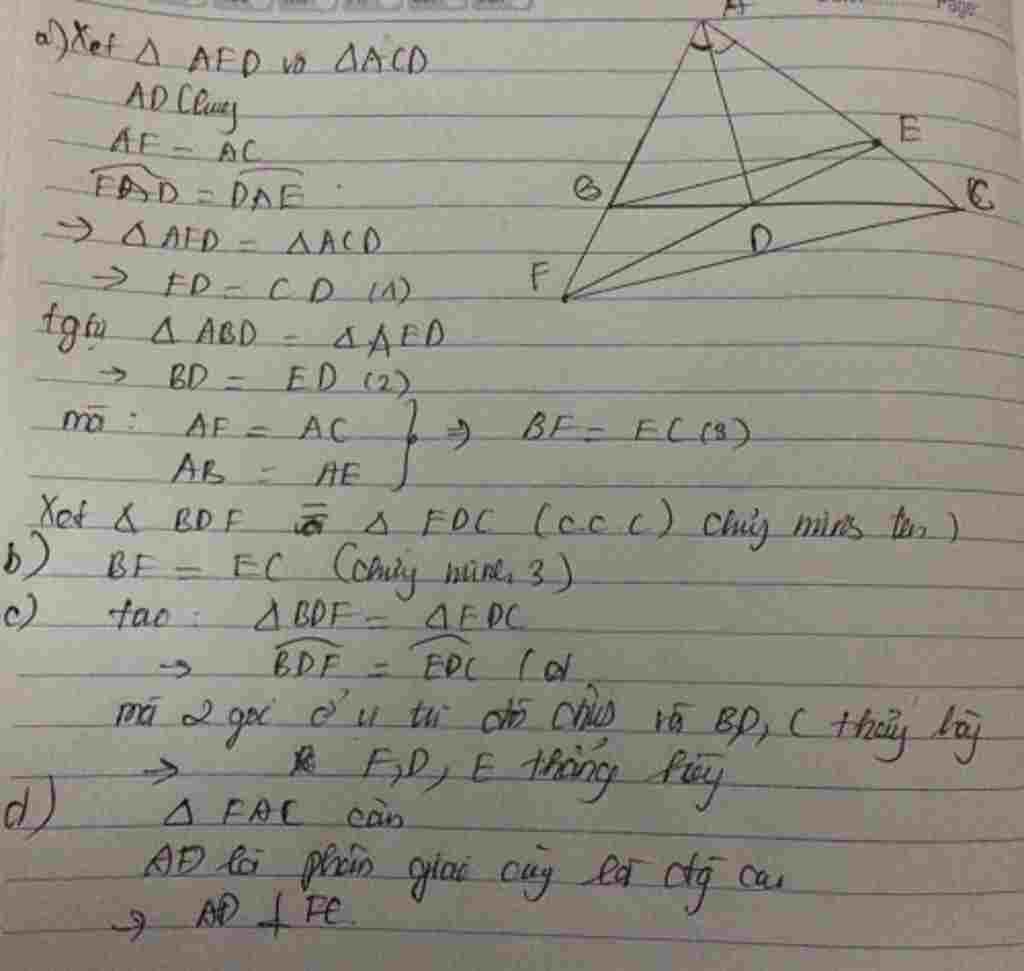 Page:
a) Xet Δ AFD và ΔACD
AD Chung
AF = AC
FAD = DAE
→ Δ AFD = ΔACD
→ FD = CD (1)
tg tự Δ ABD = ΔAED
→ BD = ED (2)
mà : AF = AC
AB = AE
} ⇒ BF = EC (3)
Xet Δ BDF và Δ EDC (c.c.c) chứng minh trên)
b) BF = EC (chứng minh 3)
c) tao : ΔBDF = ΔEDC
→ BDF = EDC (
mà 2 góc ở vị trí đối và BD, C thẳng hàng
→ F, D, E thẳng hàng
d) Δ FAC cân
AD là phân giác cũng là đg cao
→ AD ⊥ FC
A
B
C
D
E
F